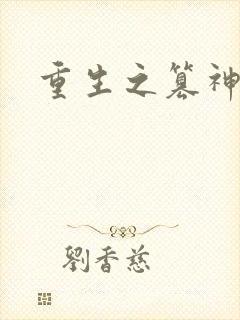 重生之篡神
劉香慈